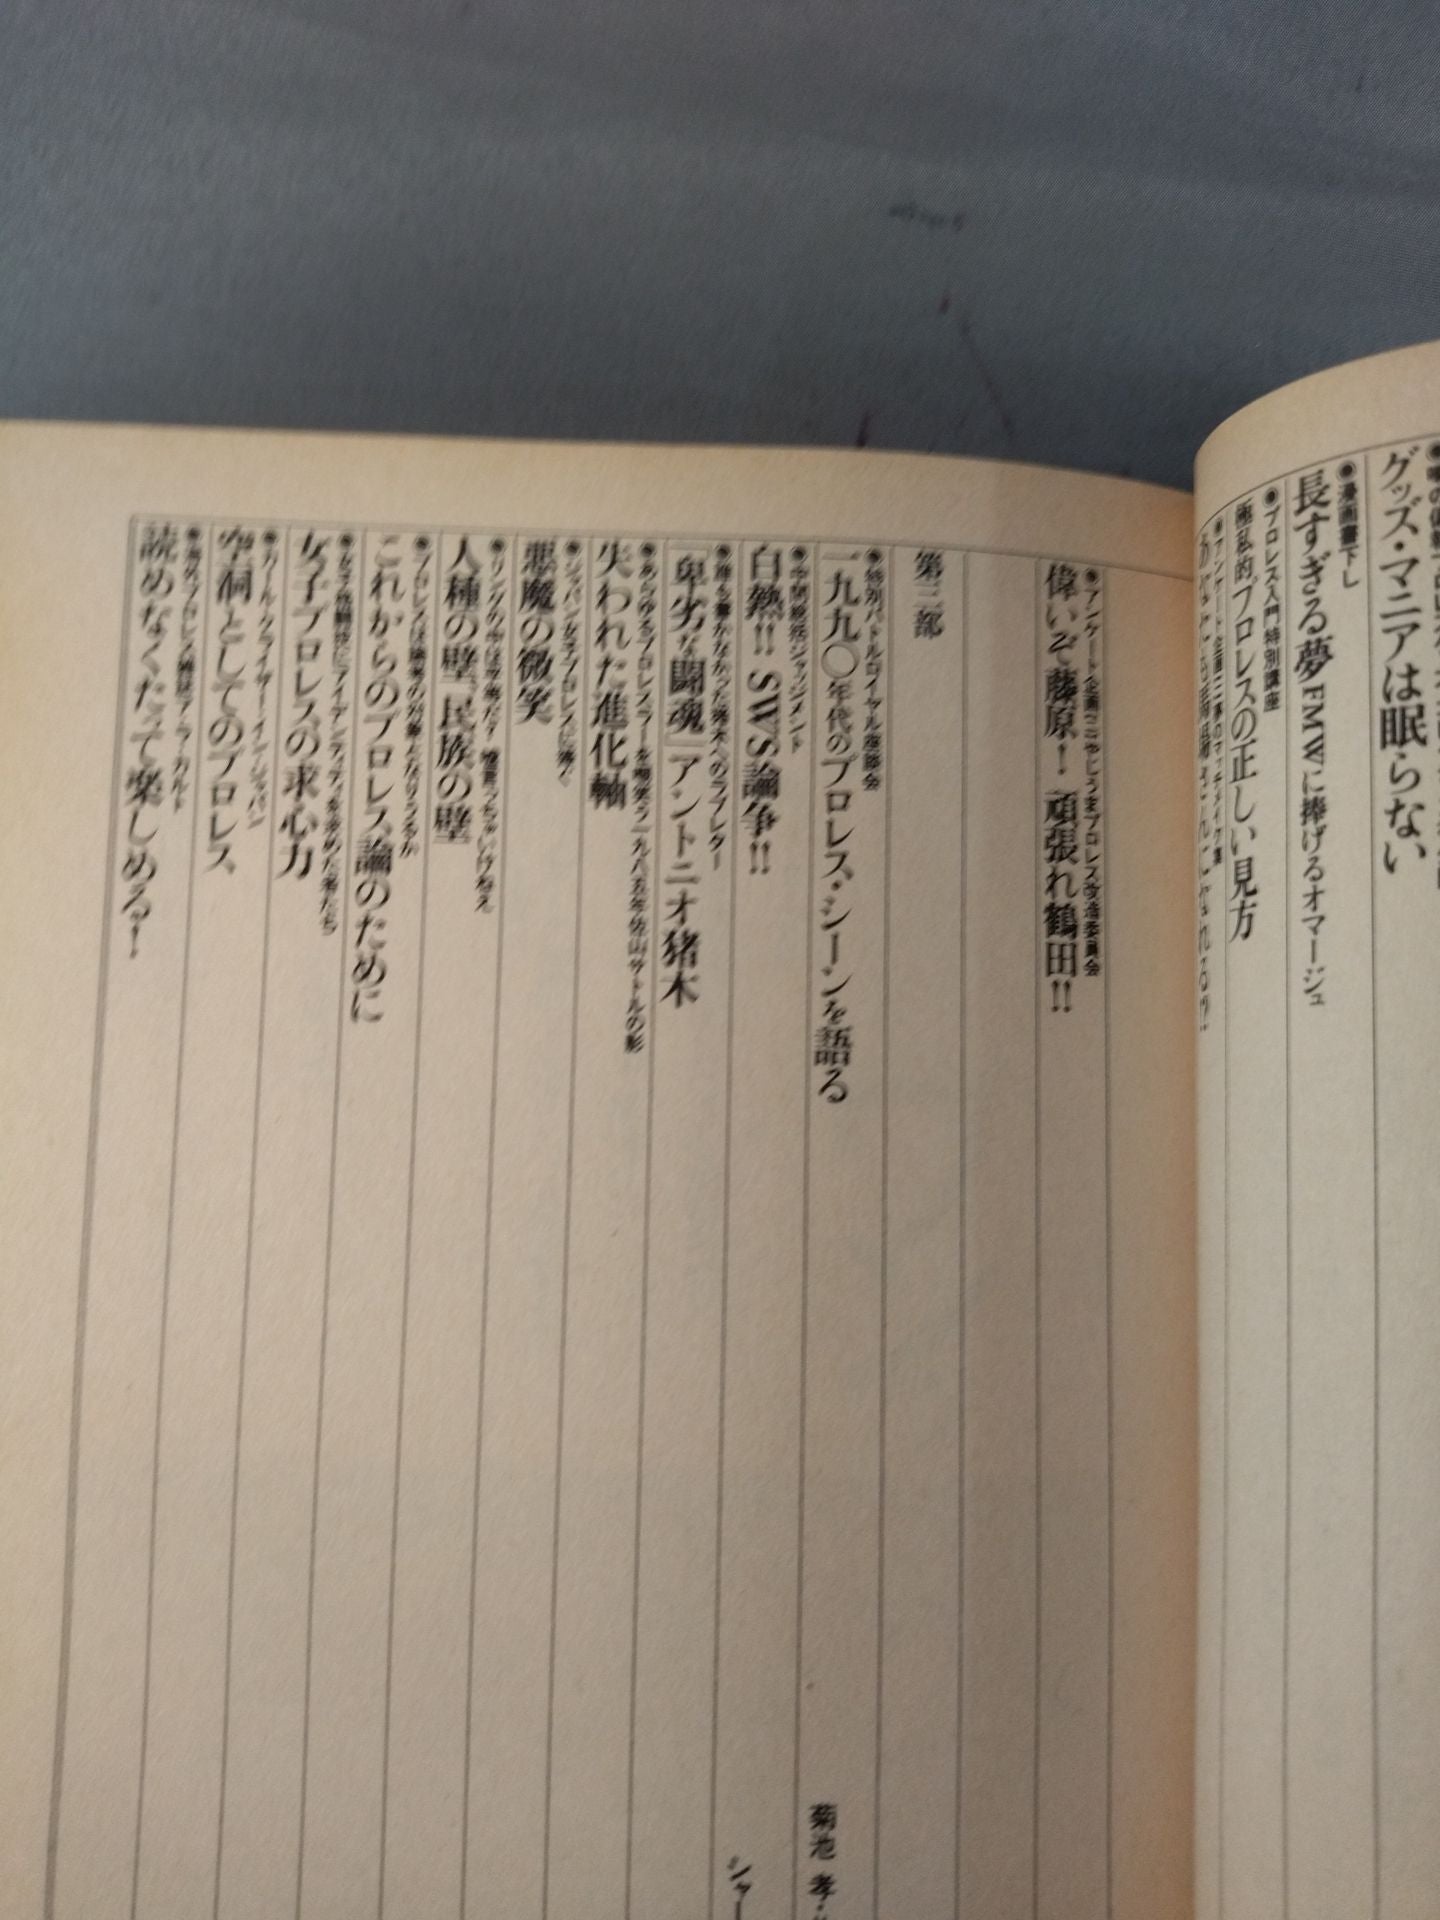 グッズ・マニアは眠らない
●漫画書下し
長すぎる夢 FMWに捧げるオマージュ
●プロレス入門特別講座
極私的プロレスの正しい見方
偉いぞ藤原！ 頑張れ鶴田!!
第三部
●特別バトルロイヤル座談会
一九九〇年代のプロレス・シーンを語る
菊池 孝
●中間総括ジャッジメント
白熱!! SWS論争!!
シャー
●誰も書かなかった猪木へのラブレター
「卑劣な闘魂」アントニオ猪木
●あらゆるプロレスラーを嘲笑う一九八五年佐山サトルの影
失われた進化軸
●ジャパン女子プロレスに捧ぐ
悪魔の微笑
人種の壁、民族の壁
●プロレスは論考の対象となりうるか
これからのプロレス論のために
●女子格闘技にアイデンティティを求めた者たち
女子プロレスの求心力
●カール・クライザー・イン・ジャパン
空洞としてのプロレス
●海外プロレス雑誌ア・ラ・カルト
読めなくたって楽しめる！